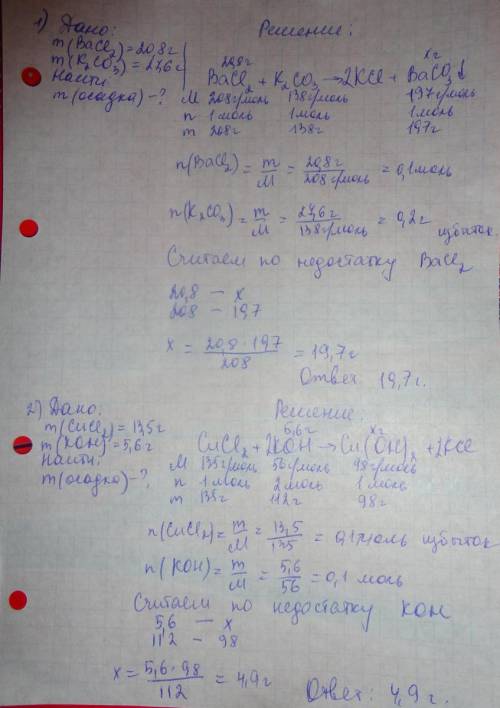 1) Дано:
Решение:
m(BaCl₂)=20,8г
m(K₂CO₃)=27,6г
Найти:
m(осадка)-?
20,8г хг
BaCl₂ + K₂CO₃ → 2KCl + BaCO₃↓
M 208г/моль 138г/моль 197г/моль
n 1моль 1моль 1моль
m 208г 138г 197г
n(BaCl₂) = m/M = 20,8г/208г/моль = 0,1моль
n(K₂CO₃) = m/M = 27,6г/138г/моль = 0,2г
избыток
Считаем по недостатку BaCl₂
20,8 — х
208 — 197
х = 20,8·197/208 = 19,7г
Ответ: 19,7г.
2) Дано:
Решение.
m(CuCl₂)=13,5г
m(KOH)=5,6г
Найти:
m(осадка)-?
5,6г хг
CuCl₂ + 2KOH → Cu(OH)₂ + 2KCl
M 135г/моль 56г/моль 98г/моль
n 1моль 2моль 1моль
m 135г 112г 98г
n(CuCl₂) = m/M = 13,5/135 = 0,1моль избыток
n(KOH) = m/M = 5,6/56 = 0,1 моль
Считаем по недостатку KOH
5,6 — х
112 — 98
х = 5,6·98/112 = 4,9г
Ответ: 4,9г.